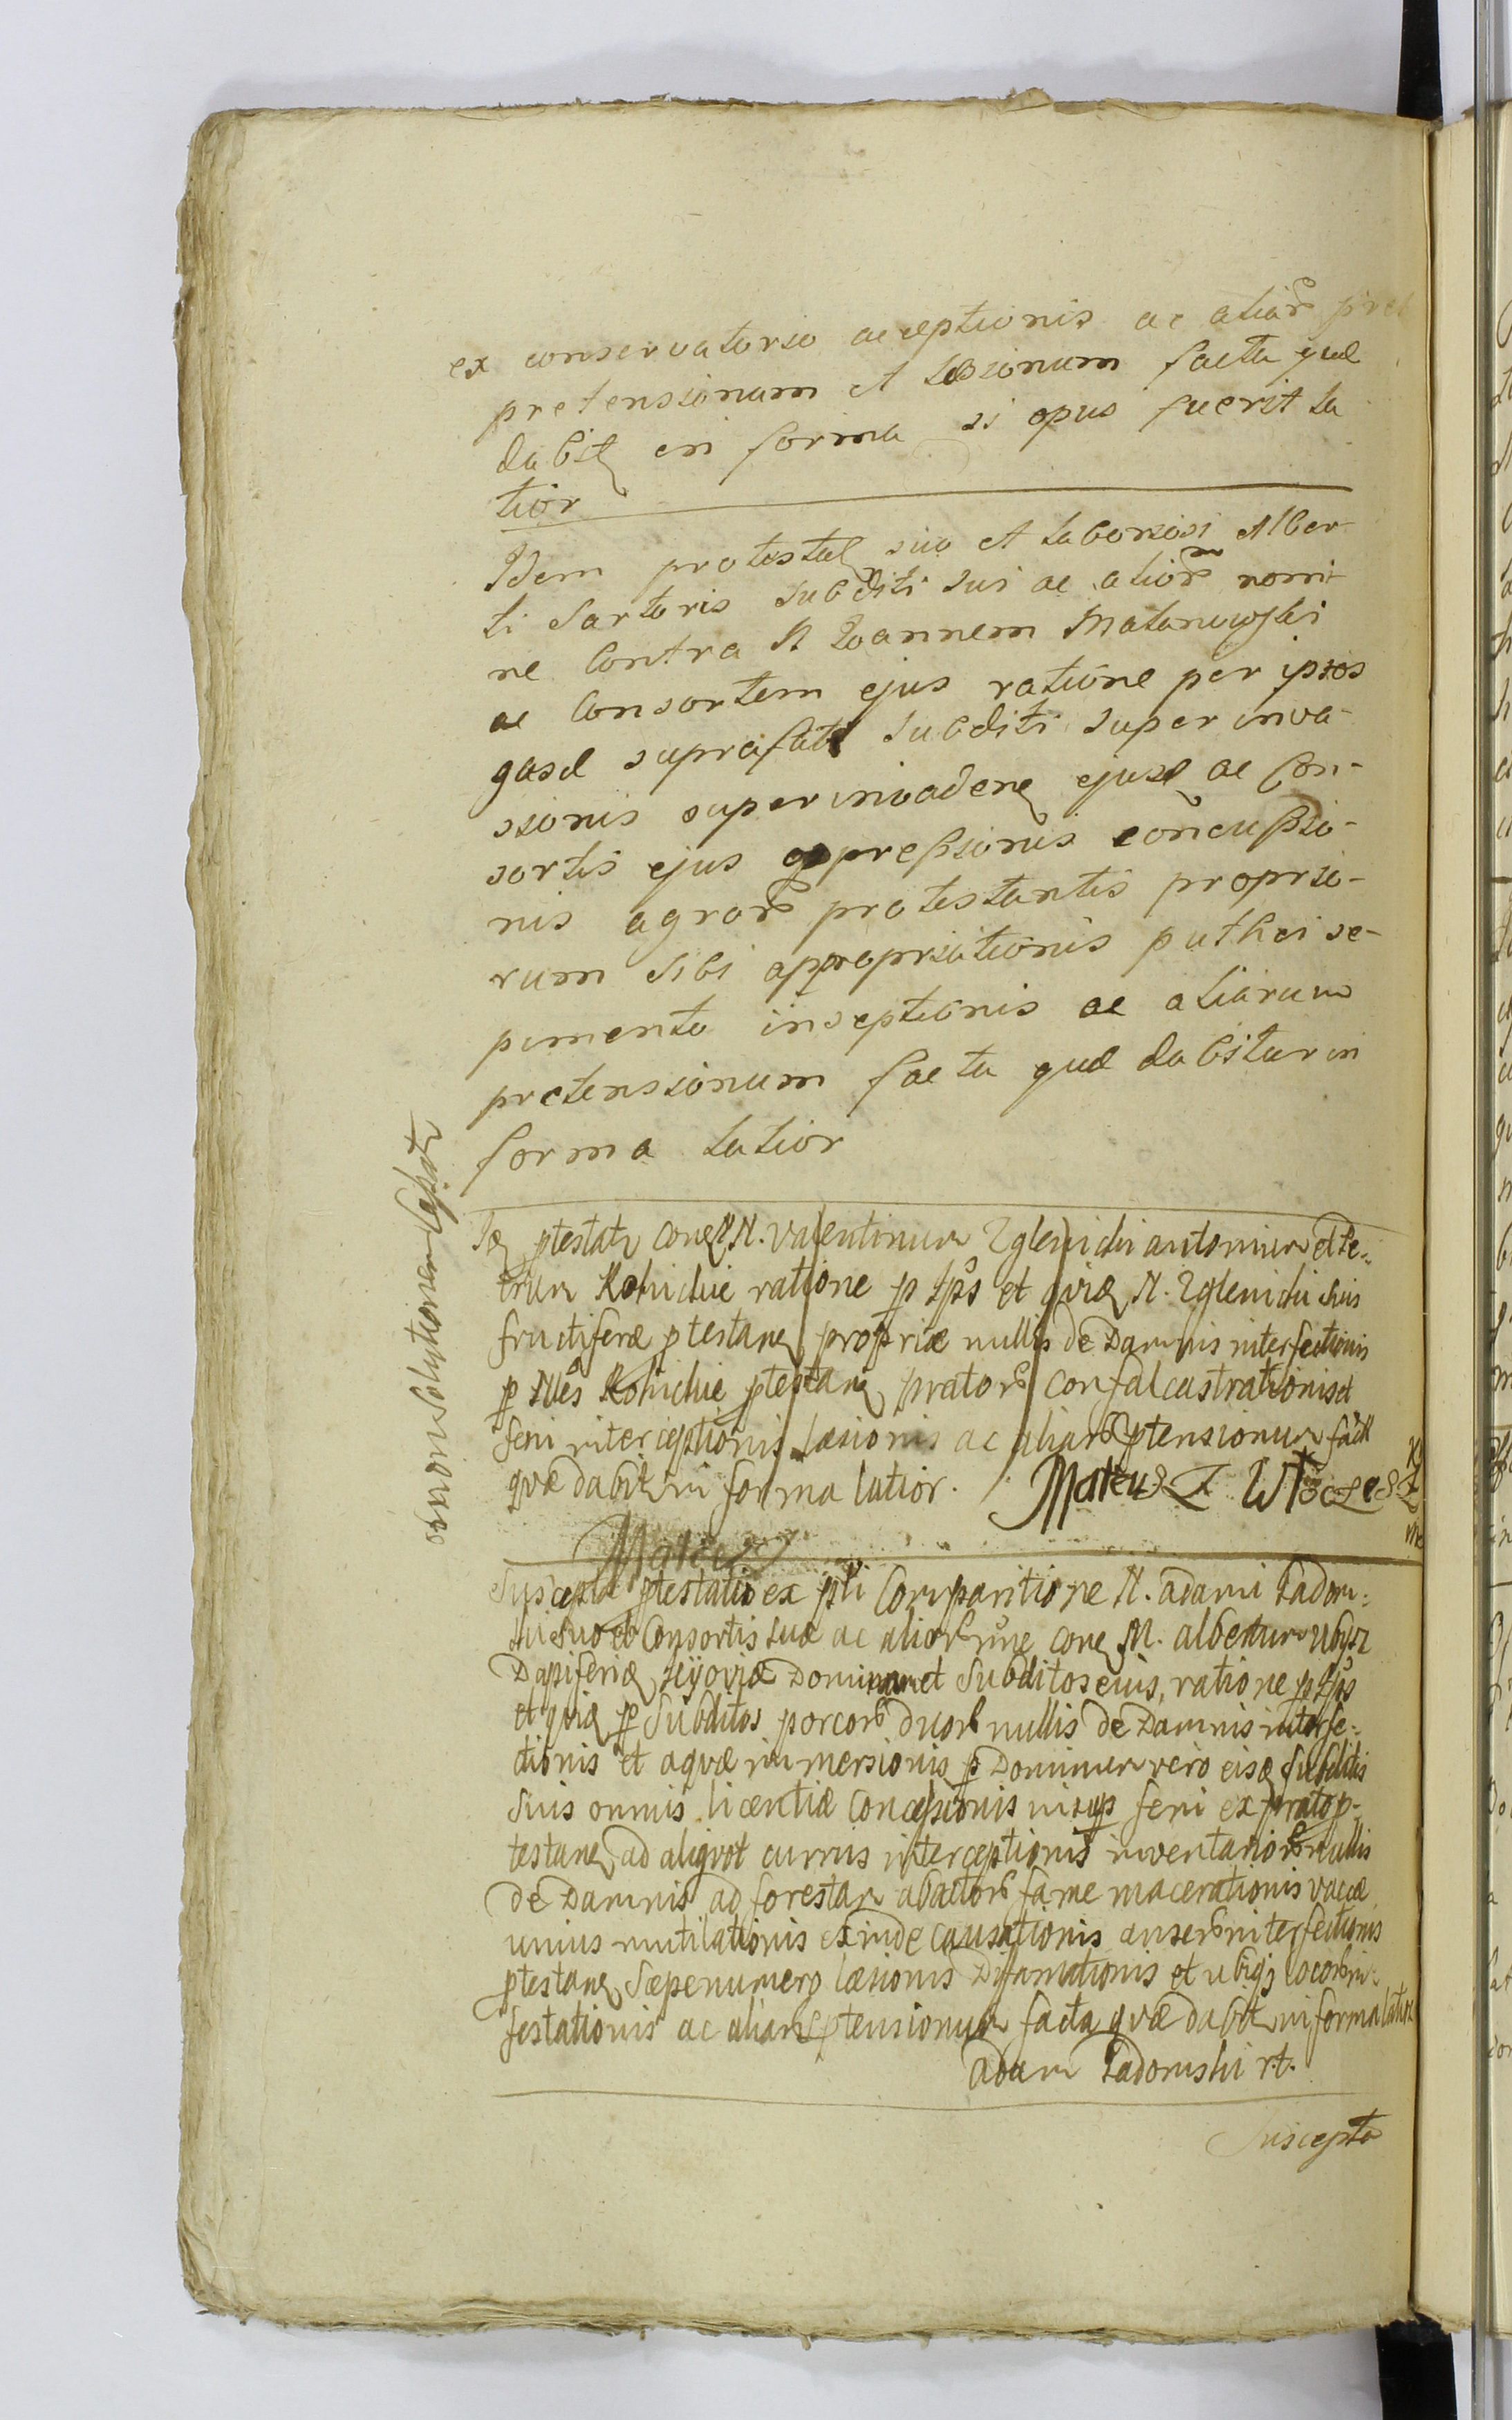 ex conservatorio acceptionis ac aliar
pretensionum et læsionum facta quæ
dabit in forma si opus fuerit la
tior
Idem protestat suo et laboriosi Alber
ti Sartoris subditi sui ac alior nomi
ne Contra N Joannem Matanowski
ac Consortem ejus ratione per ipsos
subditi super inva
sionis super invaden ejusd ac Con-
sortis ejus oppressionis concussio-
nis agror protestantis proprio-
rum sibi appropriationis puthei se-
pimento inseptionis ac aliarum
pretensionum facta quæ dabitur in
forma latior
ob non Solutionem
ptestatr con N. Valentinum Zglenicki antonium et Pe-
trum ratione p Ips et N. Zglenicki Suis
fructiferæ ptestan propriæ nullis de Damnis interfectionis
p ptestan prator confalcastrationis et
feni interceptionis læsionis ac aliar ptensionum fact
quæ dabitr in forma latior. Mateusz
Mateusz
Suscepta ptestatio ex pti Comparitione N. adami Ładom-
ski Suo et Consortis suæ ac alior nne con M. albertum
Dapiferiæ Kijoviæ Dominum et Subditos eius, ratione p Ips
et p Subditos porcor duor nullis de Damnis interfe-
ctionis et aquæ immersionis p Dominum vero Subditis
Suis omnis licentiæ Concessionis feni ex prato p-
testan ad aliquot currus interceptionis inventarior nullis
de Damnis ad forestam abactor fame macerationis vaccæ
unius mutilationis exinde causationis anser interfectionis
ptestan Sæpenumero læsionis Difamationis et ubiq locor in-
festationis ac aliar ptensionum facta quæ dabit in forma latior
Adam Ładomski r.t.
Suscepta